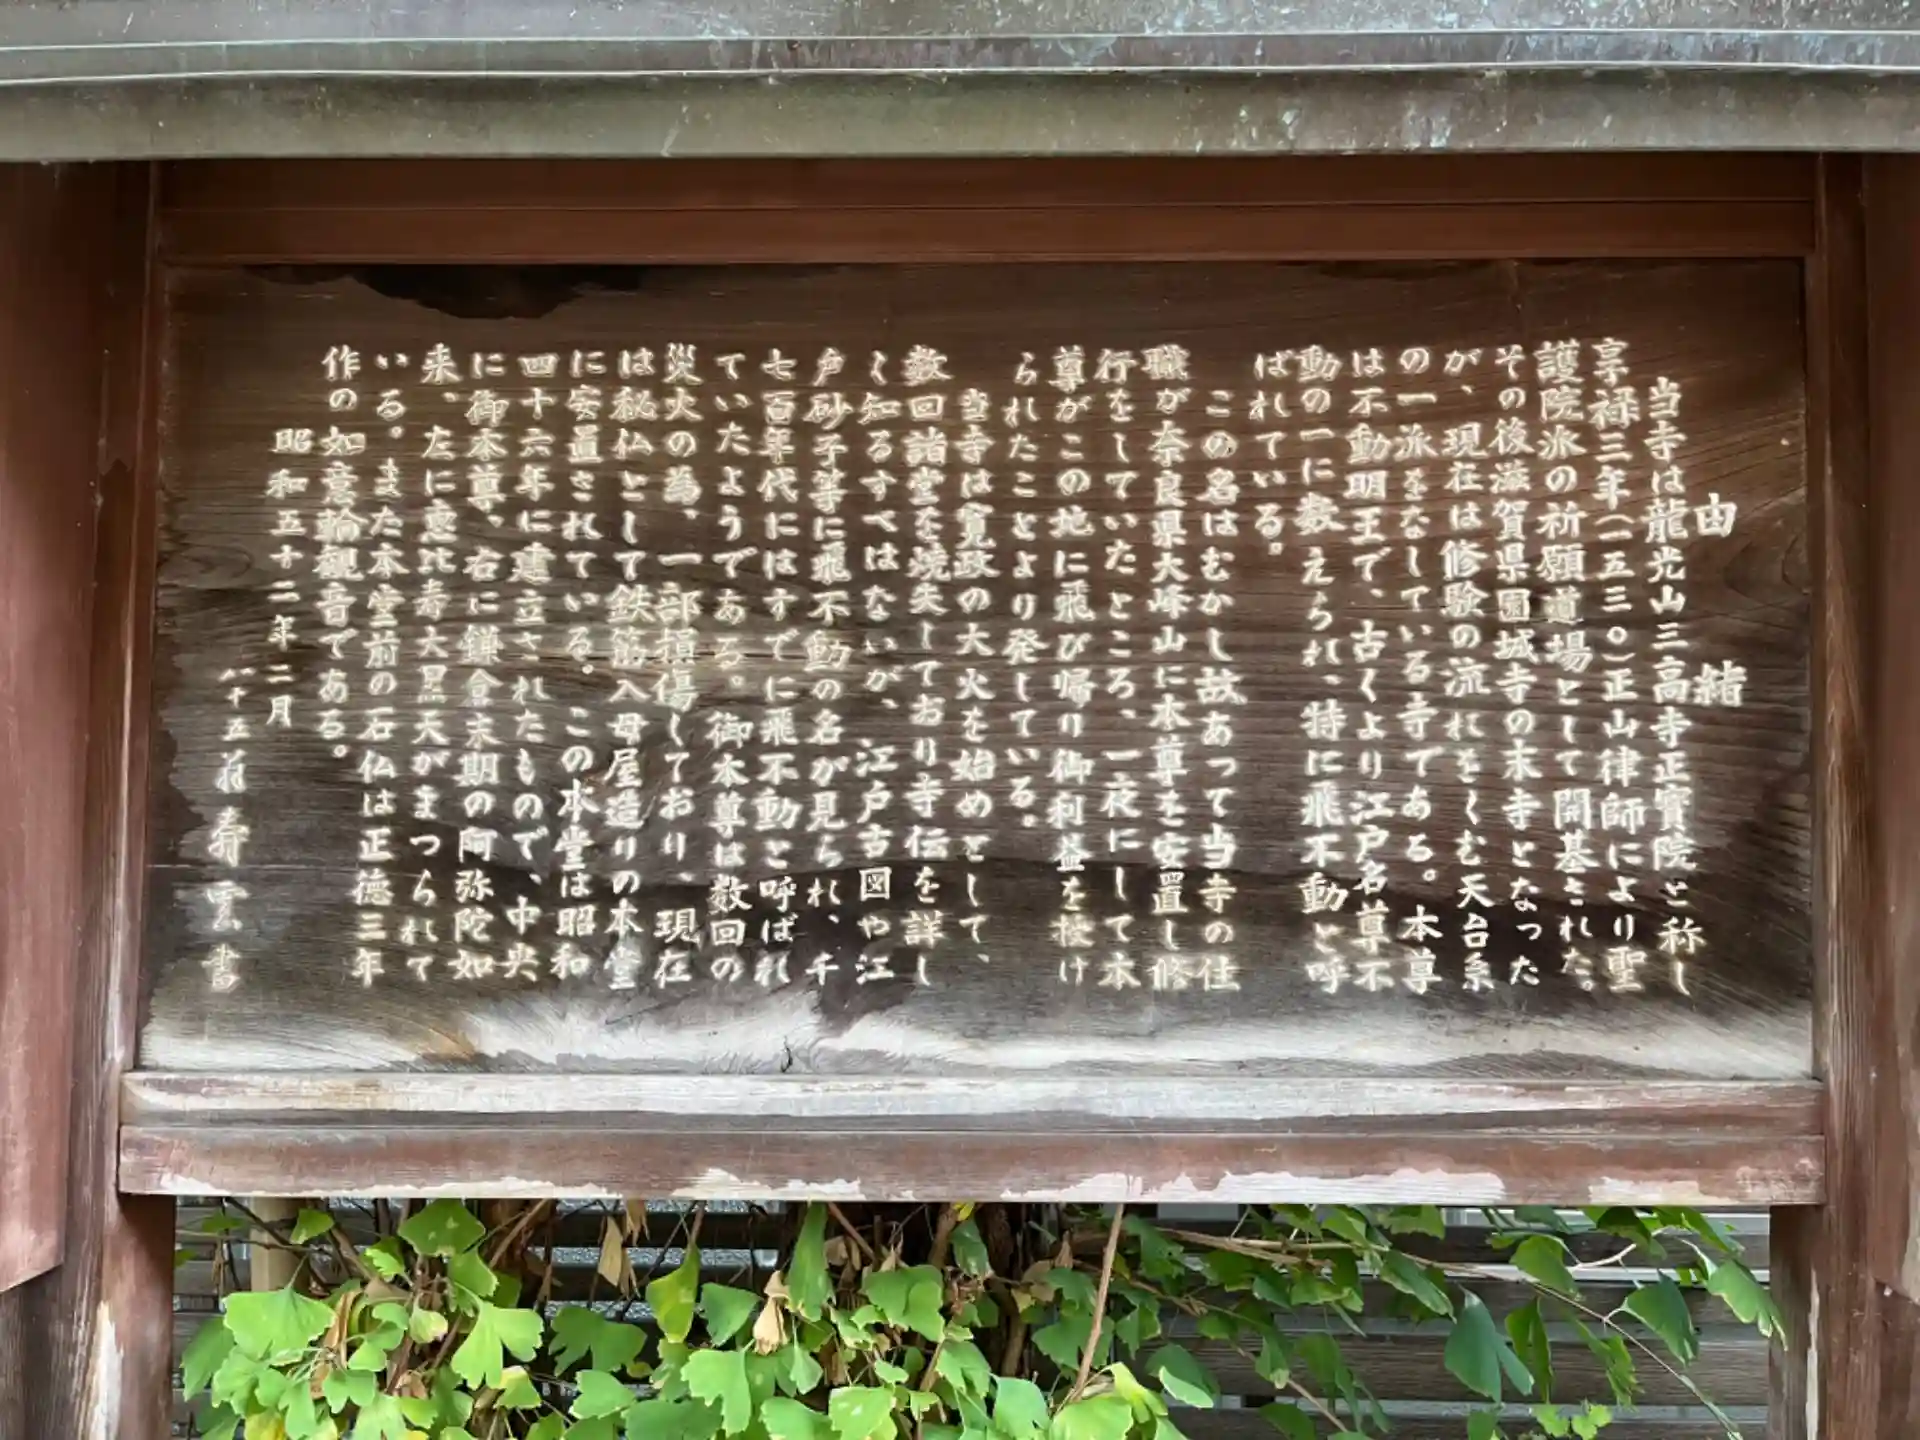 由緒
当寺は龍光山三高寺正寳院と称し
享禄三年(一五三〇)正山律師により聖
護院派の祈願道場として開基された。
その後滋賀県園城寺の末寺となった
が、現在は修験の流れをくむ天台系
の一派をなしている寺である。本尊
は不動明王で、古くより江戸名尊不
動の一に数えられ、特に飛不動と呼
ばれている。
この名はむかし故あって当寺の住
職が奈良県大峰山に本尊を安置し修
行をしていたところ、一夜にして本
尊がこの地に飛び帰り御利益を授け
られたことより発している。
当寺は寛政の大火を始めとして、
数回諸堂を焼失しており寺伝を詳し
く知るすべはないが、江戸古図や江
戸砂子等に飛不動の名が見られ、千
七百年代にはすでに飛不動と呼ばれ
ていたようである。御本尊は数回の
災火の為、一部損傷しており、現在
は秘仏として鉄筋入母屋造りの本堂
に安置されている。この本堂は昭和
四十六年に建立されたもので、中央
に御本尊、右に鎌倉末期の阿弥陀如
来、左に恵比寿大黒天がまつられて
いる。また本堂前の石仏は正徳三年
作の如意輪観音である。
昭和五十二年二月
八十五 寿雲書